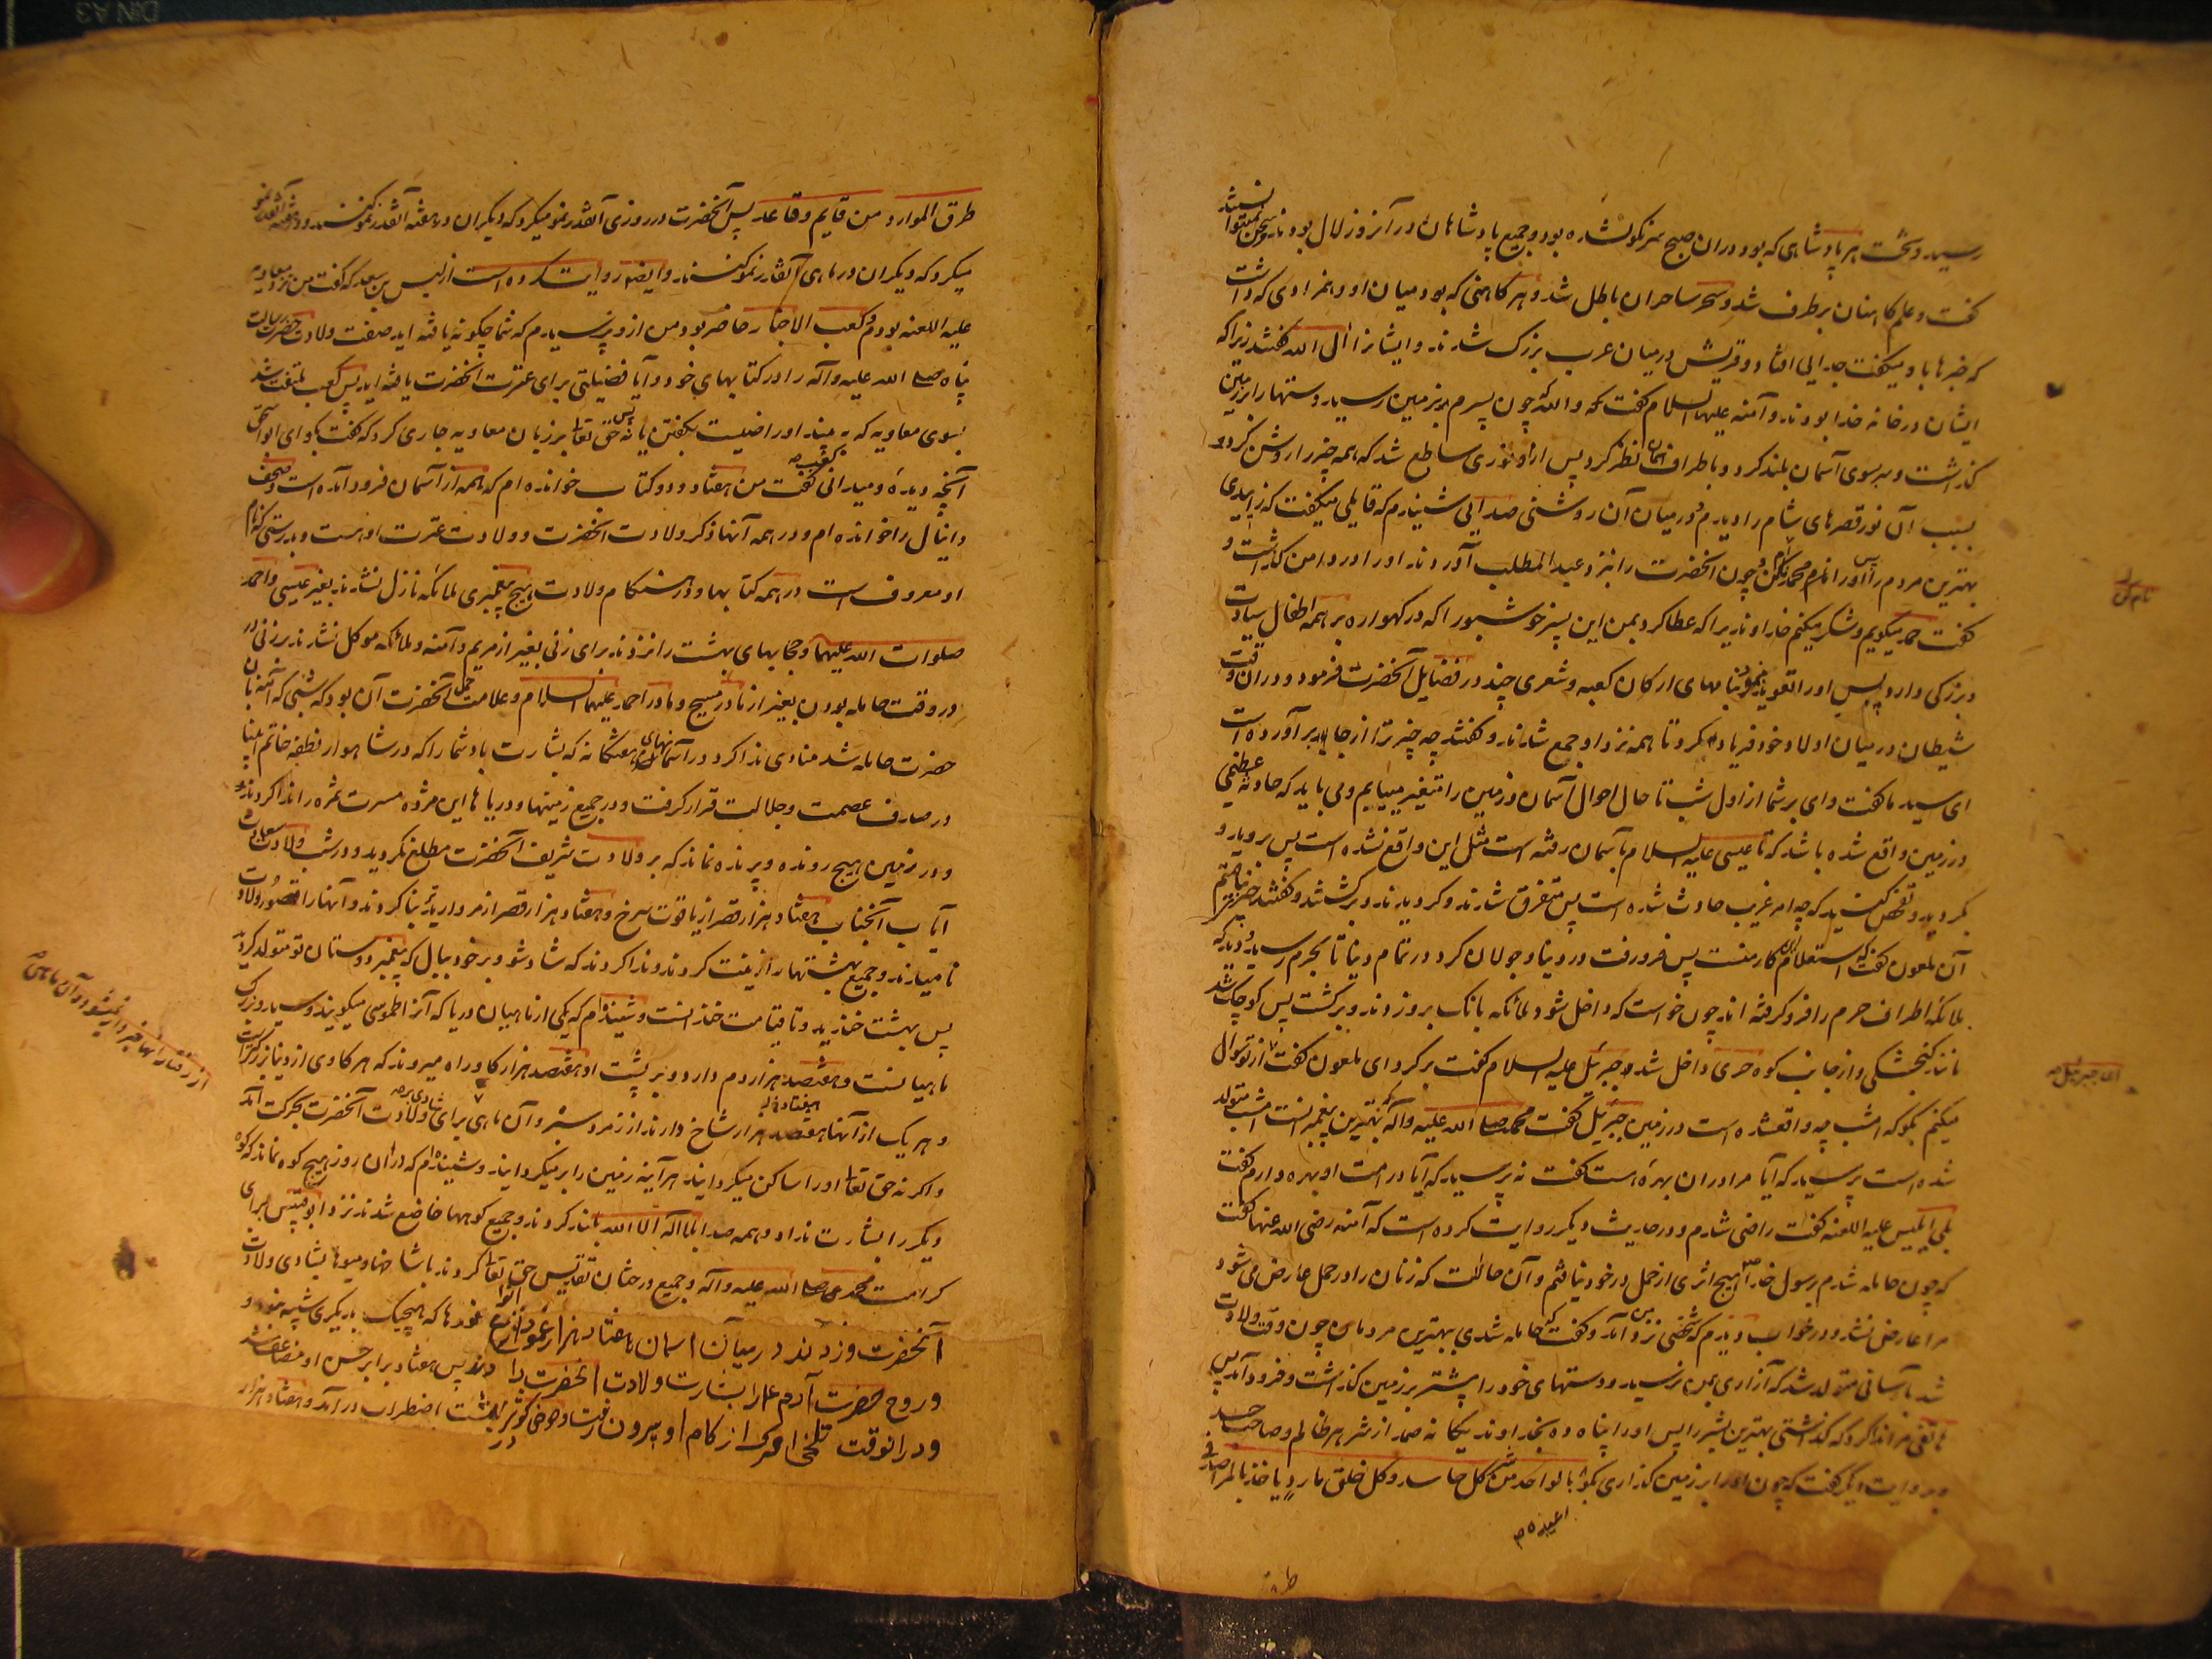 رسید و تخت هر پادشاهی که بود در آن صبح سرنگون شده بود و جمیع پادشاهان در آنروز لال بودند و سخن نمیتوانستند
گفت و علم کاهنان برطرف شد و سحر ساحران باطل شد و هر کاهنی که بود میان او و همزادی که داشت
که خبرها باو میگفت جدایی افتاد و قریش در میان عرب بزرگ شدند و ایشانرا ال الله گفتند زیرا که
ایشان در خانه خدا بودند و آمنه علیها السلام گفت که والله چون پسرم بر زمین رسید دستها را بر زمین
گذاشت و سر سوی آسمان بلند کرد و باطراف نظر کرد پس از او نوری ساطع شد که همه چیز را روشن کرد و
بسبب آن نور قصرهای شام را دیدم و در میان آن روشنی صدایی شنیدم که قایلی میگفت که زاییدی
بهترین مردم را پس او را نام محمد کن و چون آنحضرت را بنزد عبدالمطلب آوردند او را در دامن گذاشت و
گفت حمد میگویم و شکر میکنم خداوندیرا که عطا کرد بمن این پسر خوشبو را که در گهواره بر همه اطفال سیادت
و بزرگی دارد پس او را تعویذ نمود بنامهای ارکان کعبه و شعری چند در فضایل آنحضرت فرمود و در آن وقت
شیطان در میان اولاد خود فریاد کرد تا همه نزد او جمع شدند و گفتند چه چیز ترا از جا بر آورده است
ای سید ما گفت وای بر شما از اول شب تا حال احوال آسمان و زمین را متغیر مییابم و می باید که حادثه عظیمی
در زمین واقع شده باشد که تا عیسی علیه السلام بآسمان رفته است مثل این واقع نشده است پس بروید و
بگردید و تفحص کنید که چه امر غریب حادث شده است پس متفرق شدند و گردیدند و برگشتند و گفتند چیزی نیافتیم
آن ملعون گفت که استعلام این کار منست پس فرو رفت در دنیا و جولان کرد در تمام دنیا تا بحرم رسید و دید که
ملائکه اطراف حرم را فرو گرفته اند چون خواست که داخل شود ملائکه بانک برو زدند و برگشت پس کوچک شد
مانند گنجشکی و از جانب کوه حری داخل شد جبرئیل علیه السلام گفت برگرد ای ملعون گفت از تو سوال
میکنم بگو که امشب چه واقع شده است در زمین جبرئیل گفت محمد صلی الله علیه وآله که بهترین پیغمبرانست امشب متولد
شده است پرسید که آیا مرا در آن بهره است گفت نه پرسید که آیا در امت او بهره دارم گفت
بلی ابلیس علیه اللعنه گفت راضی شدم و در حدیث دیگر روایت کرده است که آمنه رضی الله عنها گفت
که چون حامله شدم برسول خدا هیچ اثری از حمل در خود نیافتم و آن حالات که زنان را در حمل عارض می شود
مرا عارض نشد و در خواب دیدم که شخصی نزد من آمد و گفت که حامله شدی ببهترین مردمان چون وقت ولادت
شد بآسانی متولد شد که آزاری بمن نرسید و دستهای خود را پیشتر بر زمین گذاشت و فرود آمد پس
هاتفی مرا ندا کرد که گذاشتی بهترین بشر را پس او را پناه ده بخداوند یگانه صمد از شر هر ظالم و صاحب حسد
و بروایت دیگر گفت که چون او را بر زمین گذاری بگو بالواحد من شر کل حاسد و کل خلق مارد یاخذ بالمراصد فی
اعیذه
نام کن
ای جبرئیل
طرق الموارد من قایم و قاعد پس آنحضرت در روزی آنقدر نمو میکرد که دیگران در هفته آنقدر نمو کنند و در هفته آنقدر نمو
میکرد که دیگران در ماهی آنقدر نمو کنند و ایضا روایت کرده است از لیس بن سعد که گفت من نزد معاویه
علیه اللعنه بودم و کعب الاحبار حاضر بود من ازو پرسیدم که شما چگونه یافته اید صفت ولادت حضرت رسالت
پناه صلی الله علیه وآله را در کتابهای خود و آیا فضیلتی برای عترت آنحضرت یافته اید پس کعب ملتفت شد
بسوی معاویه که به بیند او راضیست بگفتن یا نه پس حق تعالی بر زبان معاویه جاری کرد که گفت بگو ای ابو اسحق
آنچه دیده و میدانی کعب گفت من هفتاد و دو کتاب خوانده ام که همه از آسمان فرود آمده است و صحف
دانیال را خوانده ام و در همه آنها ذکر ولادت آنحضرت و ولادت عترت او هست و بدرستی که نام
او معروف است در همه کتابها و در هنگام ولادت هیچ پیغمبری ملائکه نازل نشدند بغیر عیسی و احمد
صلوات الله علیهما و حجابهای بهشت را نزدند برای زنی بغیر از مریم و آمنه و ملائکه موکل نشدند بر زنی
در وقت حامله بودن بغیر از مادر مسیح و مادر احمد علیهما السلام و علامت حمل آنحضرت آن بود که شبی که آمنه بآن
حضرت حامله شد منادی ندا کرد در آسمانهای هفتگانه که بشارت باد شما را که در شاهوار نطفه خاتم انبیا
در صدف عصمت و جلالت قرار گرفت و در جمیع زمینها و دریاها این مژده مسرت ثمره را ندا کردند و
و در زمین هیچ رونده و پرنده نماند که بر ولادت شریف آنحضرت مطلع نگردید و در شب ولادت سعادت
آیات آنجناب هفتاد هزار قصر از یاقوت سرخ و هفتاد هزار قصر از مروارید بنا کردند و آنها را قصور ولادت
نامیدند و جمیع بهشتها را زینت کردند و ندا کردند که شاد شو و بر خود ببال که پیغمبر دوستان تو متولد گردید
پس بهشت خندید و تا قیامت خندانست و شنیده ام که یکی از ماهیان دریا که آنرا طموسی میگویند و سید و بزرگ
ماهیانست و هفتصد هزار دم دارد و بر پشت او هفتصد هزار گاو راه میروند که هر گاوی از دنیا بزرگتر است
و هر یک از آنها هفتاد هزار شاخ دارند از زمرد سبز و آن ماهی برای شادی ولادت آنحضرت بحرکت آمد
و اگر نه حق تعالی او را ساکن میگردانید هر آینه زمین را بر میگردانید و شنیده ام که در آن روز هیچ کوه نماند که کوه
دیگر را بشارت نداد و همه صدا بلا اله الا الله بلند کردند و جمیع کوهها خاضع شدند نزد ابو قبیس برای
کرامت محمد صلی الله علیه وآله و جمیع درختان تقدیس حق تعالی کردند با شاخها و میوها بشادی ولادت
آنحضرت و زدند در میان آسمان هفتاد هزار عمود از انواع نورها که هیچیک بدیگری شبیه نبود و
و روح حضرت آدم را بشارت ولادت آنحضرت دادند پس هفتاد برابر حسن او مضاعف شد
و در آنوقت تلخی مرگ از کام او بیرون رفت و حوض کوثر در بهشت اضطراب در آمد و هفتاد هزار